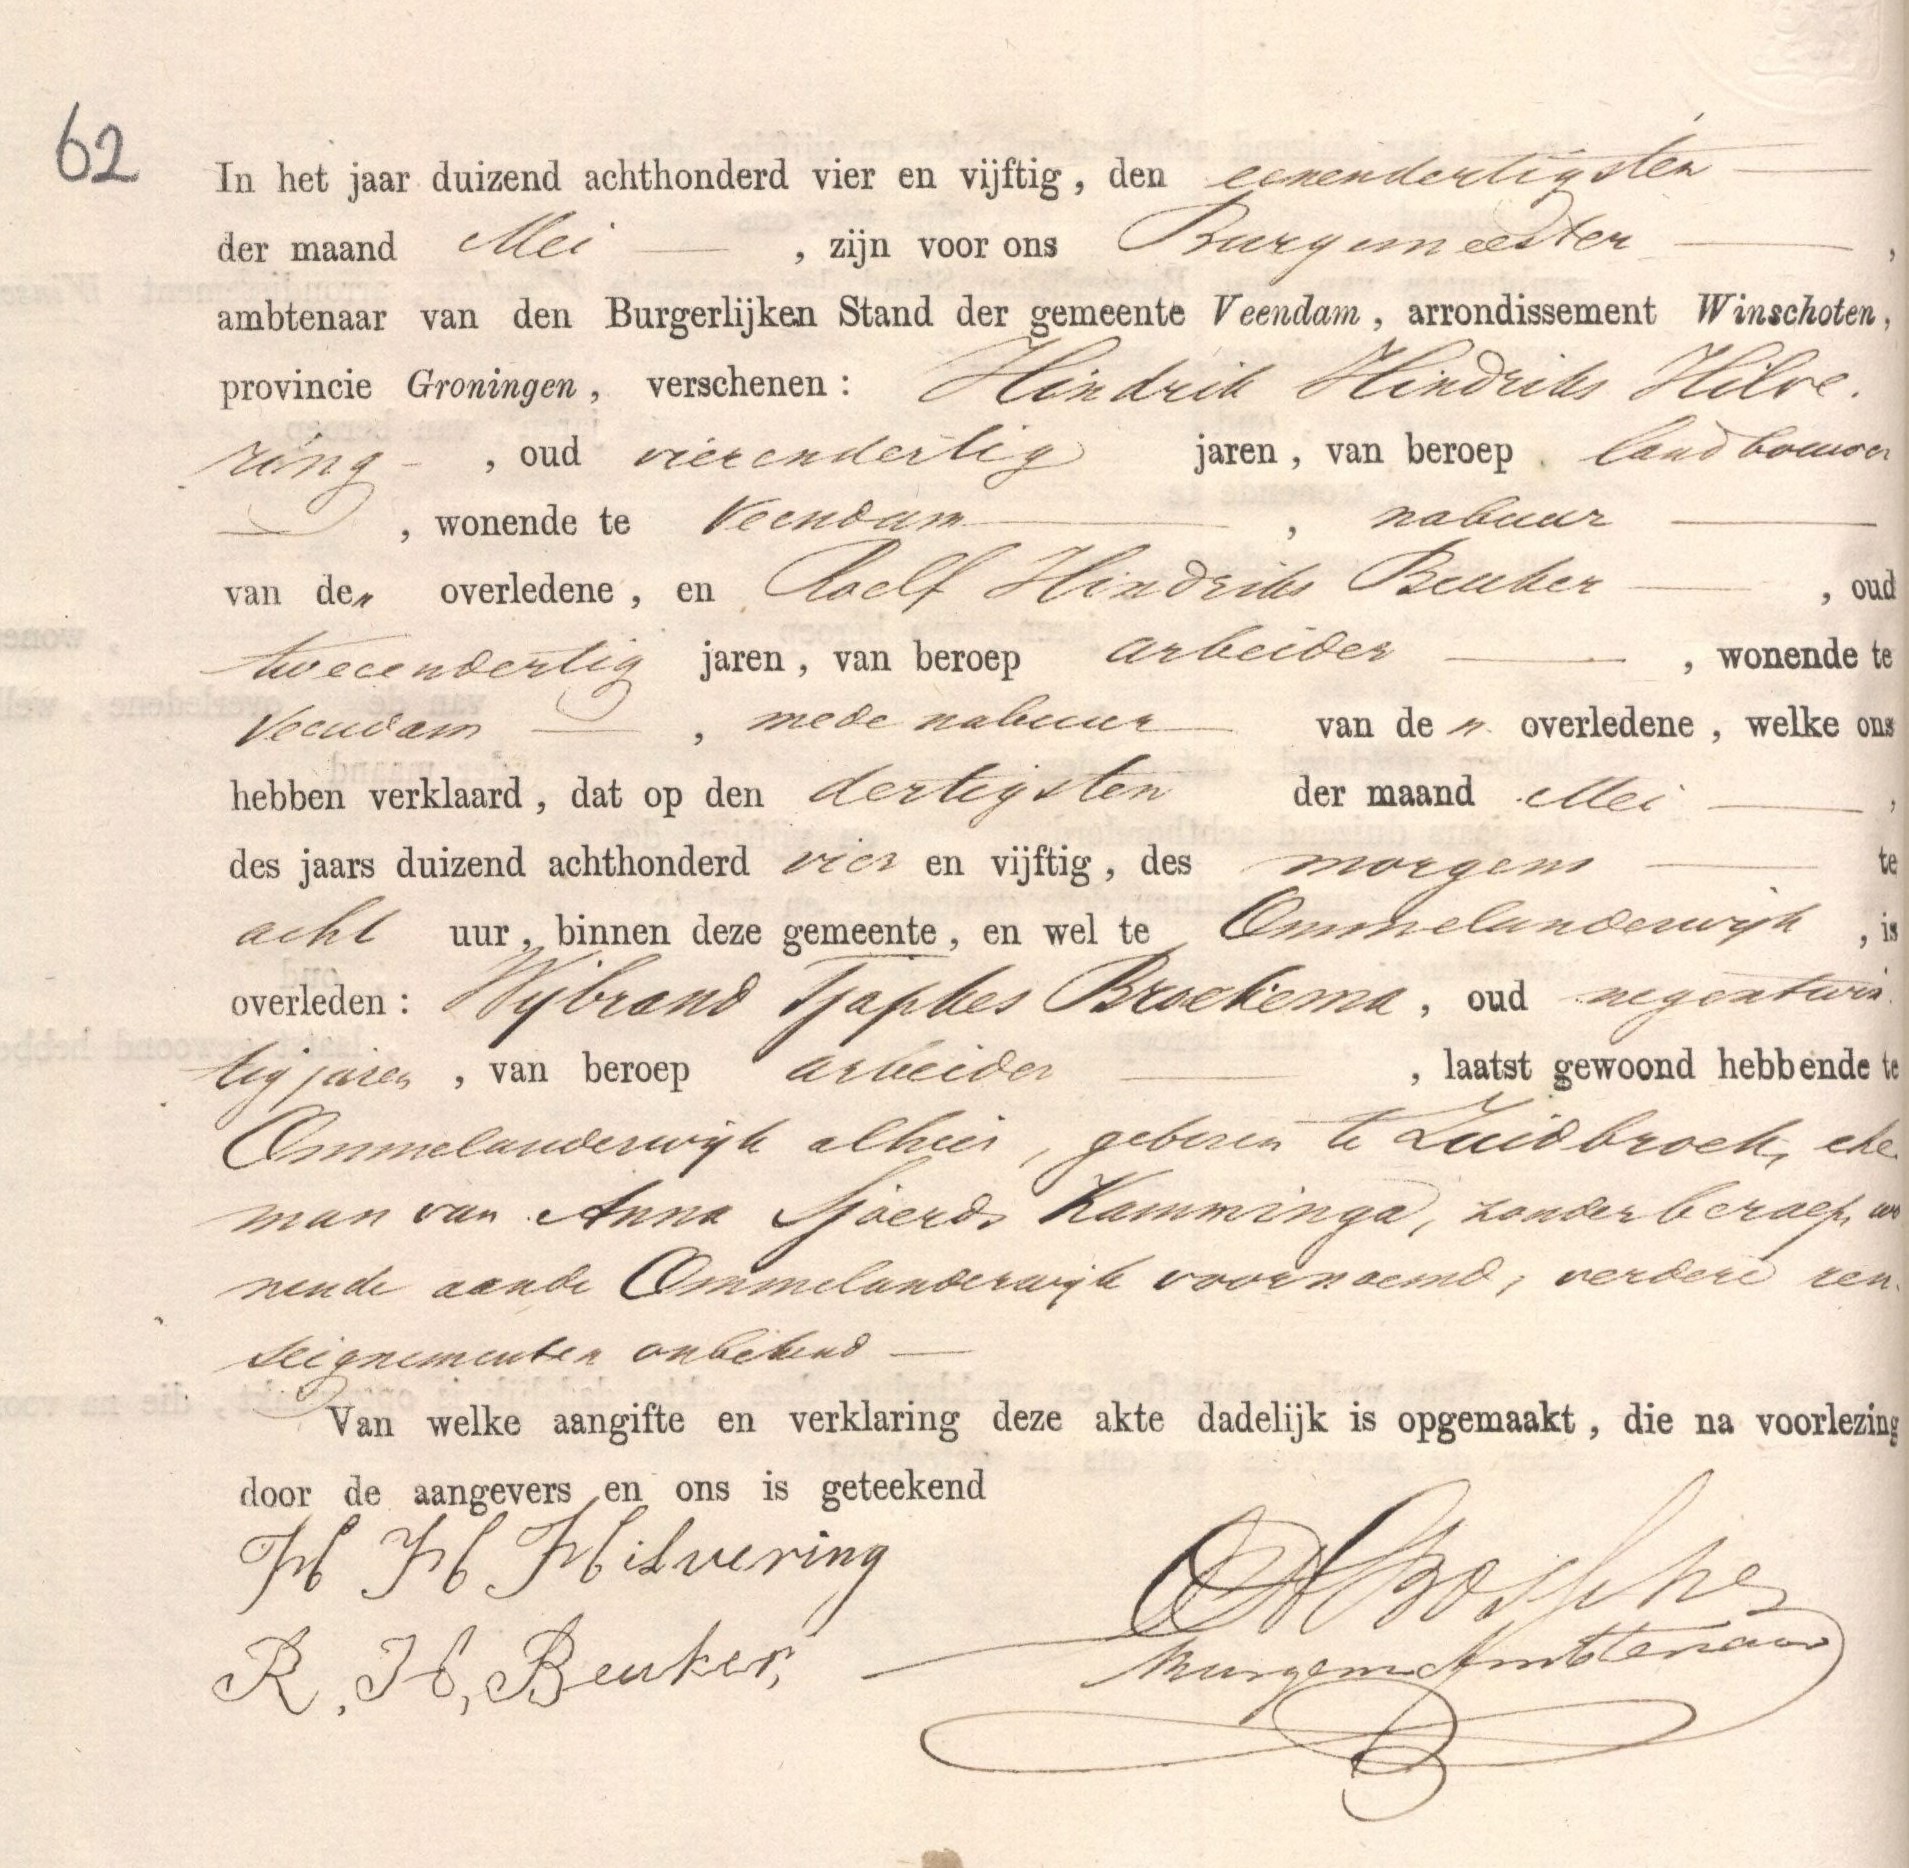 62
In het jaar duizend achthonderd vier en vijftig, den eenendertigsten
der maand Mei, zijn voor ons Burgemeester,
ambtenaar van den Burgerlijken Stand der gemeente Veendam, arrondissement Winschoten,
provincie Groningen, verschenen: Hindrik Hindriks Hilve-
ring, oud vierendertig jaren, van beroep landbouwer
, wonende te Veendam, nabuur
van den overledene, en Roelf Hindriks Beuker, oud
tweeendertig jaren, van beroep arbeider, wonende te
Veendam, mede nabuur van den overledene, welke ons
hebben verklaard, dat op den dertigsten der maand Mei,
des jaars duizend achthonderd vier en vijftig, des morgens te
acht uur, binnen deze gemeente, en wel te Ommelanderwijk, is
overleden: Wijbrand Tjapkes Broekema, oud negentwin-
tig jaren, van beroep arbeider, laatst gewoond hebbende te
Ommelanderwijk alhier, geboren te Zuidbroek, ehe-
man van Anna Sjoerds Kamminga, zonder beroep, wo
nende aan de Ommelanderwijk voornoemd, verdere ren-
seignementen onbekend
Van welke aangifte en verklaring deze akte dadelijk is opgemaakt, die na voorlezing
door de aangevers en ons is geteekend
H H Hilvering
R. H, Beuker,
Burgem Ambtenaar